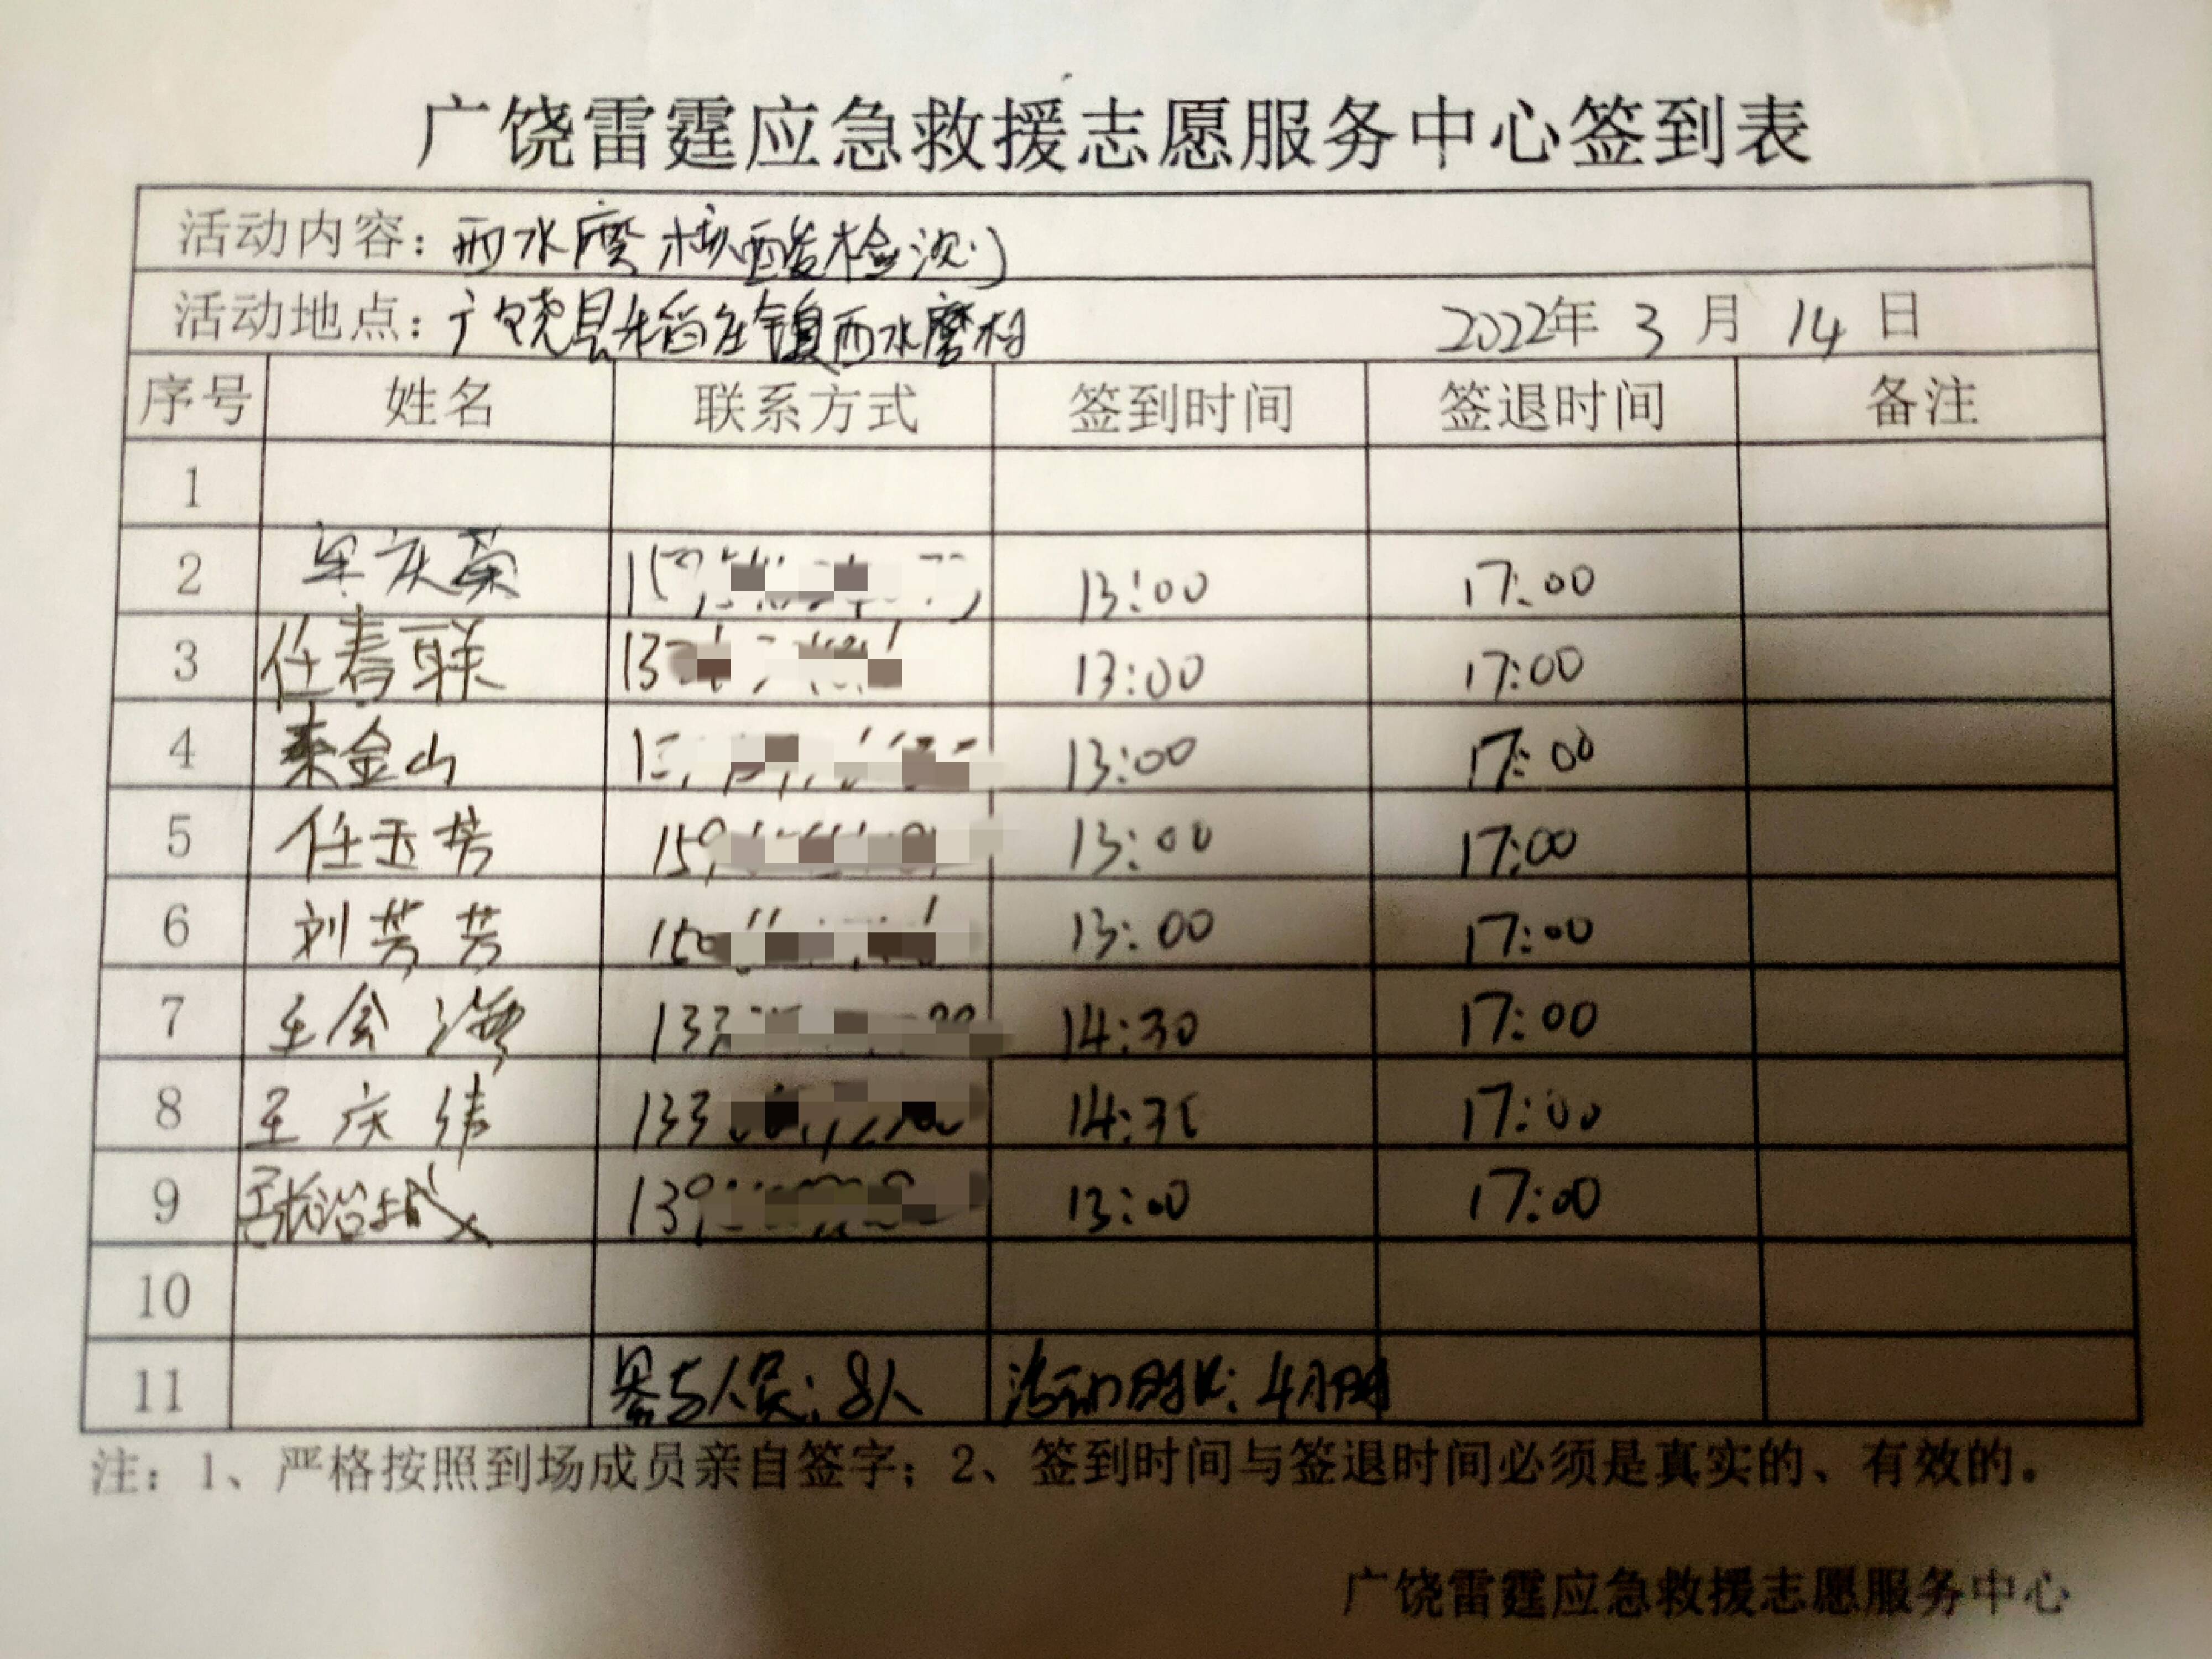 广饶雷霆应急救援志愿服务中心签到表
活动内容：西水磨核酸检测
活动地点：广饶县稻庄镇西水磨村 2022年 3月 14日
序号 姓名 联系方式 签到时间 签退时间 备注
1
2 庆荣 13:00 17:00
3 任春联 13:00 17:00
4 秦金山 13:00 17:00
5 任玉芳 159 13:00 17:00
6 刘芳芳 150 13:00 17:00
7 王会海 133 14:30 17:00
8 王庆伟 133 14:30 17:00
9 139 13:00 17:00
10
11 参与人员：8人 活动时长：4小时
注：1、严格按照到场成员亲自签字；2、签到时间与签退时间必须是真实的、有效的。
广饶雷霆应急救援志愿服务中心